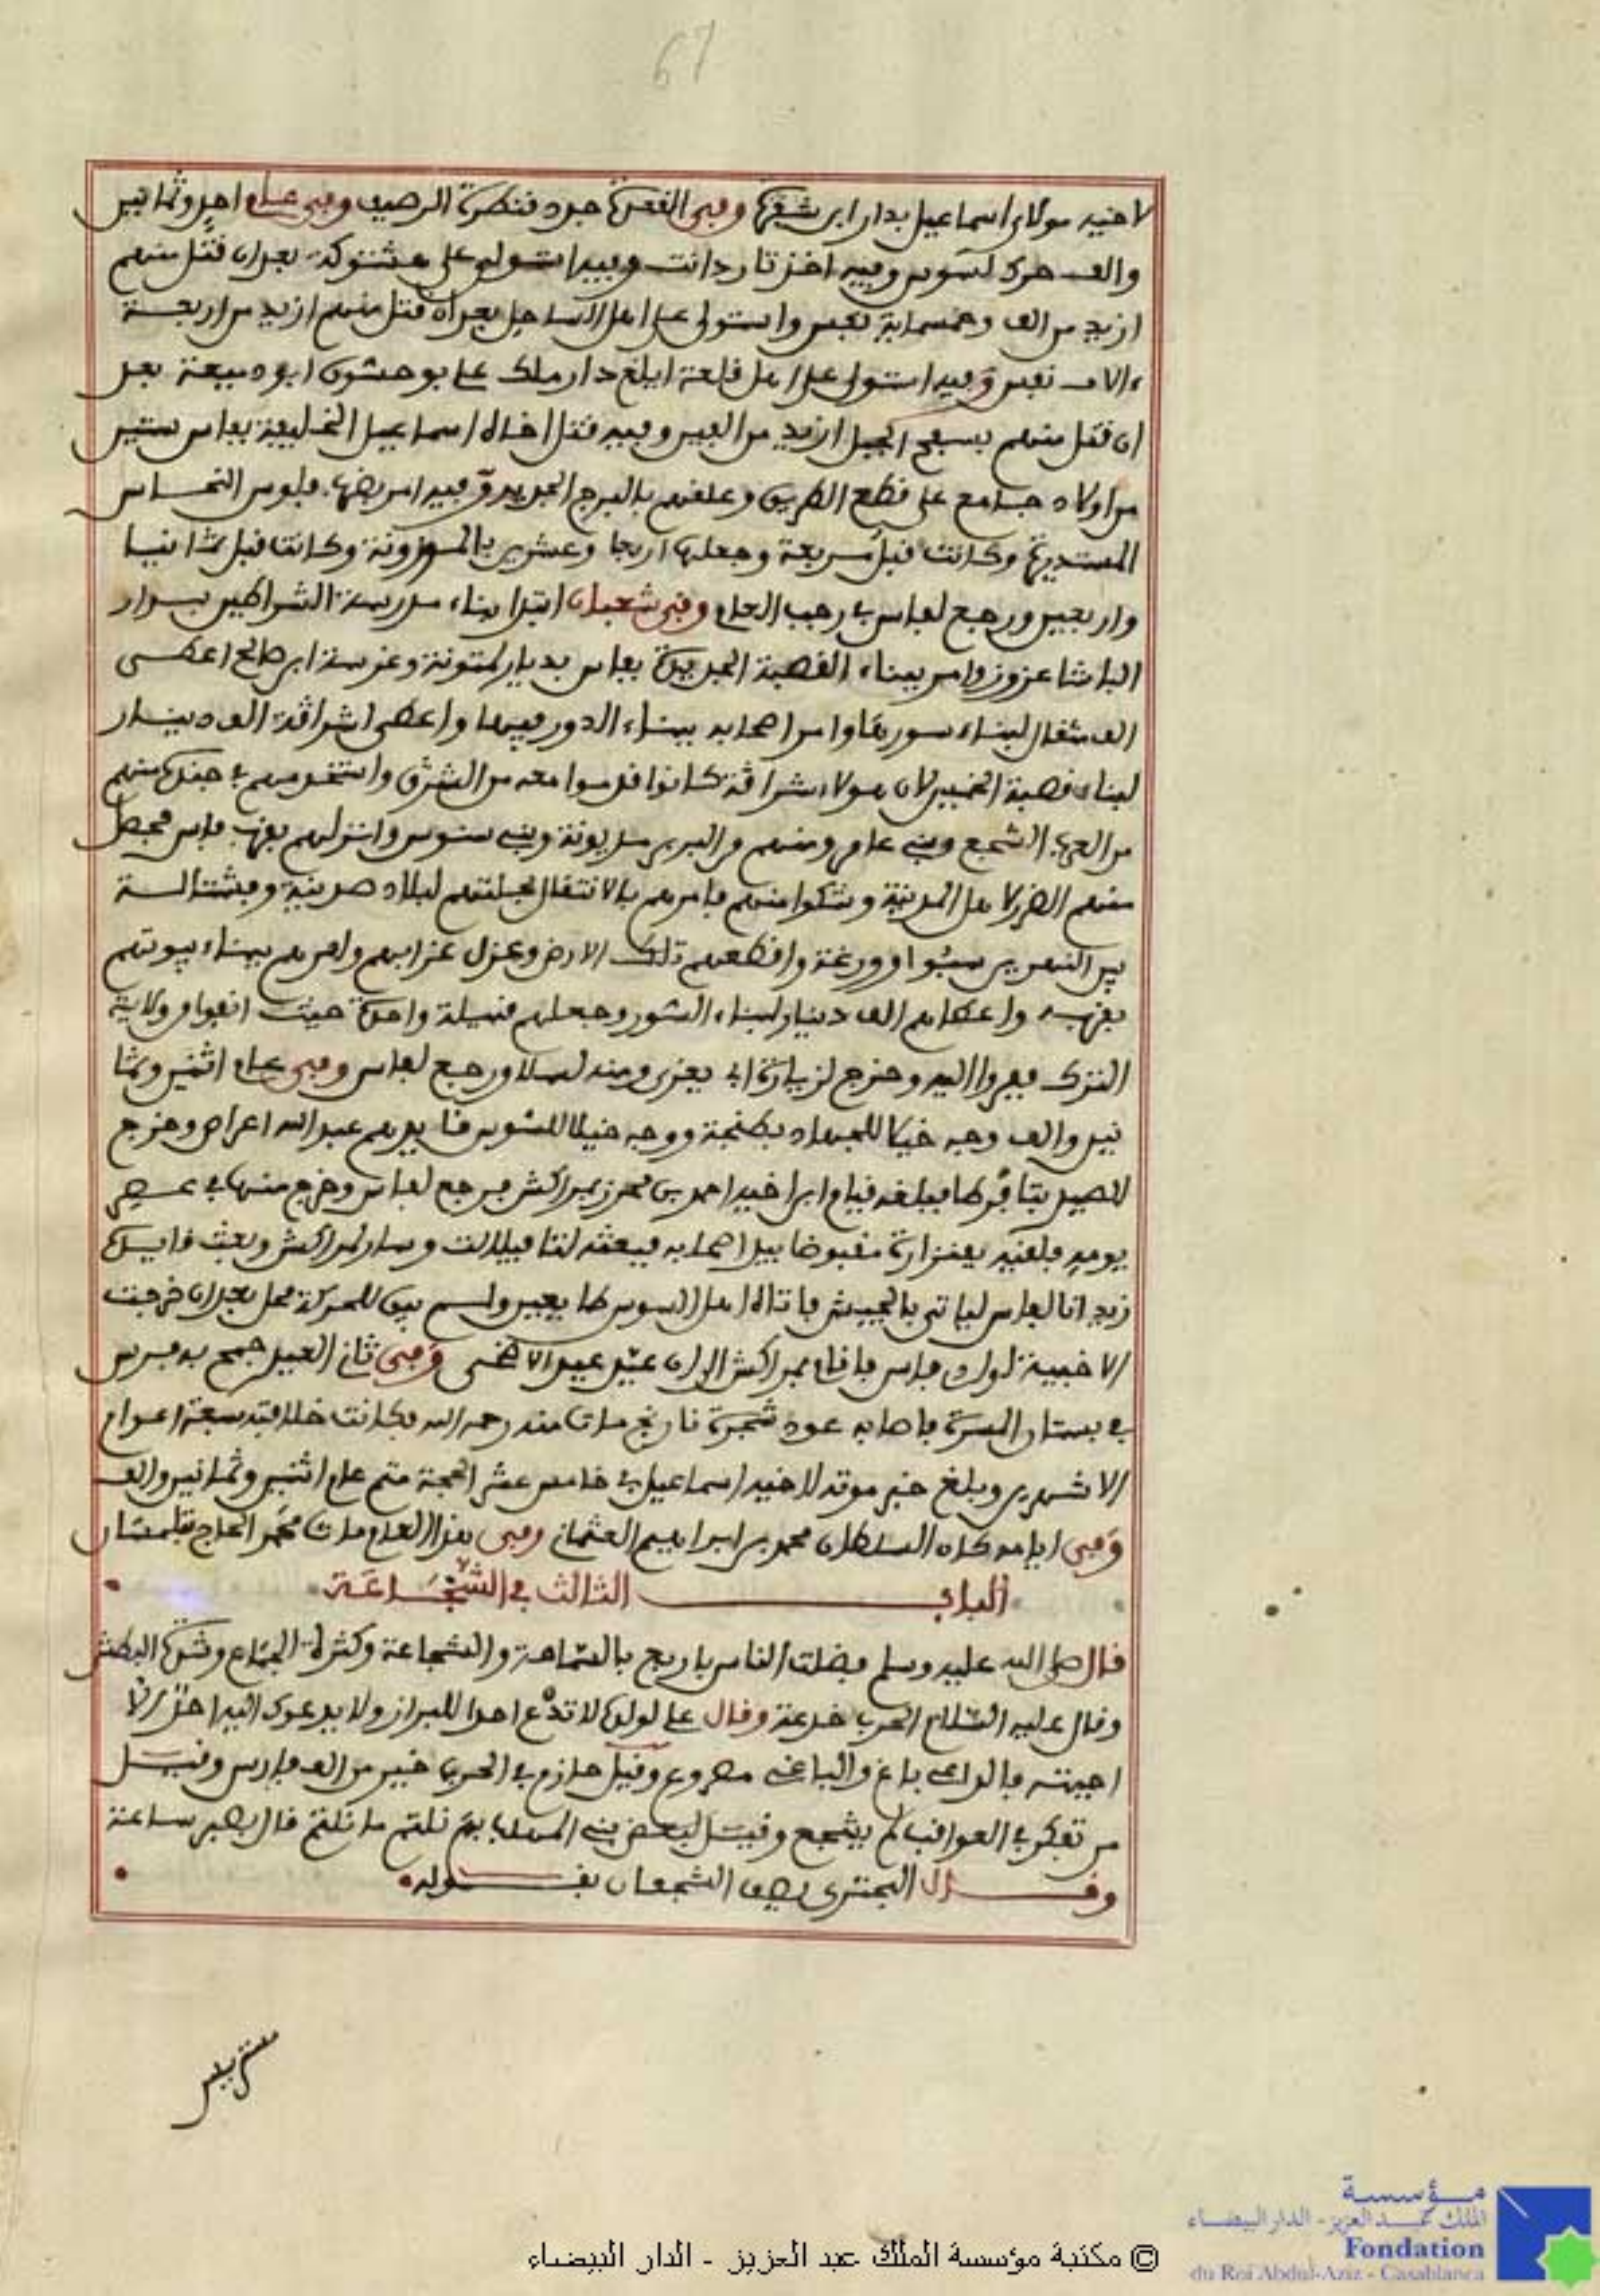 67
لاخيه مولاي اسماعيل بدار ابن شقرة وفي القعدة جدد قنطرة الرصيف وفي عام احد وثمانين
والف حرك لسوس وفيه اخذ تارودانت وفيه استولى على هشتوكة بعد ان قتل منهم
ازيد من الف وخمسماية نفس واستولى على اهل الساحل بعد ان قتل منهم ازيد من اربعة
ءالاف نفس وفيه استولى على اهل قلعة ايليغ دار ملك علي بوحسون ابو دميعة بعد
ان قتل منهم بسفح الجبل ازيد من الفين وفيه قتل اخاه اسماعيل الخليفة بفاس ستين
من اولاد جامع على قطع الطريق وعلقهم بالبرج الجديد وفيه امر بضرب فلوس النحاس
المستديرة وكانت قبل مربعة وجعلها اربعا وعشرين بالموزونة وكانت قبل ثمانيا
واربعين ورجع لفاس في رجب العام وفي شعبان ابتدا بناء مدرسة الشراطين بدار
الباشا عزوز وامر ببناء القصبة الجديدة بفاس بديار لمتونة وغرسة ابن صالح اعطى
الف مثقال لبناء سورها وامر اصحابه ببناء الدور فيها واعطى اشراقة الف دينار
لبناء قصبة الخميس لان هولاء شراقة كانوا قدموا معه من الشرق واستخدمهم في جندك منهم
من العرب الشجع وبني عامر ومنهم من البربر مديونة وبني سنوس وانزلهم بقرب فاس فحصل
منهم الضرر لاهل المدينة وشكوا منهم فامرهم بالانتقال بحلتهم لبلاد صدينة وفشتالة
بين النهرين سبو اوورغة واقطعهم تلك الارض وعزل عزابهم وامرهم ببناء بيوتهم
بقربه واعطاهم الف دينار لبناء السور وجعلهم قبيلة واحدة حيث انفوا من ولاية
الترك ففروا اليه وخرج لزيارة ابي يعزى ومنه لسلا ورجع لفاس وفي عام اثنين وثما
نين والف وجه خيلا للجهاد بطنجة ووجه خيلا للسوس قايدهم عبد الله اعراص وخرج
للصيد بتافرطا فبلغه قيام ابن اخيه احمد بن محرز بمراكش فرجع لفاس وخرج منها في عصر
يومه فلقيه بفنزارة مقبوضا بيد اصحابه فبعثه لتافيلالت وسار لمراكش وبعث قايده
زيدانا لفاس لياتي بالجيش فاتاه اهل السوس طايعين ولم يبق للحركة محل بعد ان خرجت
الاخبية لوادي فاس فاقام بمراكش الى ان عيد عيد الاضحى وفي ثاني العيد جمح به فرس
في بستان المسرة فاصابه عود شجرة نارنج مات منه رحمه الله فكانت خلافته سبعة اعوام
الا شهرين وبلغ خبر موته لاخيه اسماعيل في خامس عشر الحجة متم عام اثنين وثمانين والف
وفي ايامه كان السلطان محمد بن ابراهيم العثماني وفي هذا العام مات محمد الحاج بتلمسان
الباب الثالث في الشجاعة
قال صلى الله عليه وسلم فضلت الناس باربع بالسماحة والشجاعة وكثرة الجماع وشدة البطش
وقال عليه السلام الحرب خدعة وقال علي لولده لا تدع احدا للبراز ولا يدعوك اليه احد الا
اجبته فالداعي باغ والباغي مصروع وقيل حازم في الحرب خير من الف فارس وقيل
من تفكر في العواقب لم يشجع وقيل لبعض بني المهلب بم نلتم ما نلتم قال بصبر ساعة
وقال البحتري يصف الشجعان بقوله
© مكتبة مؤسسة الملك عبد العزيز - الدار البيضاء
مؤسسة
الملك عبد العزيز - الدار البيضاء
Fondation
du Roi Abdul-Aziz - Casablanca